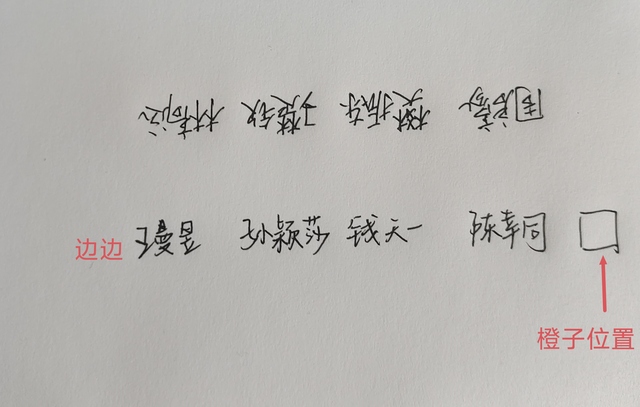 周启豪 樊振东 王楚钦 林高远
边边 王曼昱 孙颖莎 钱天一 陈幸同
橙子位置